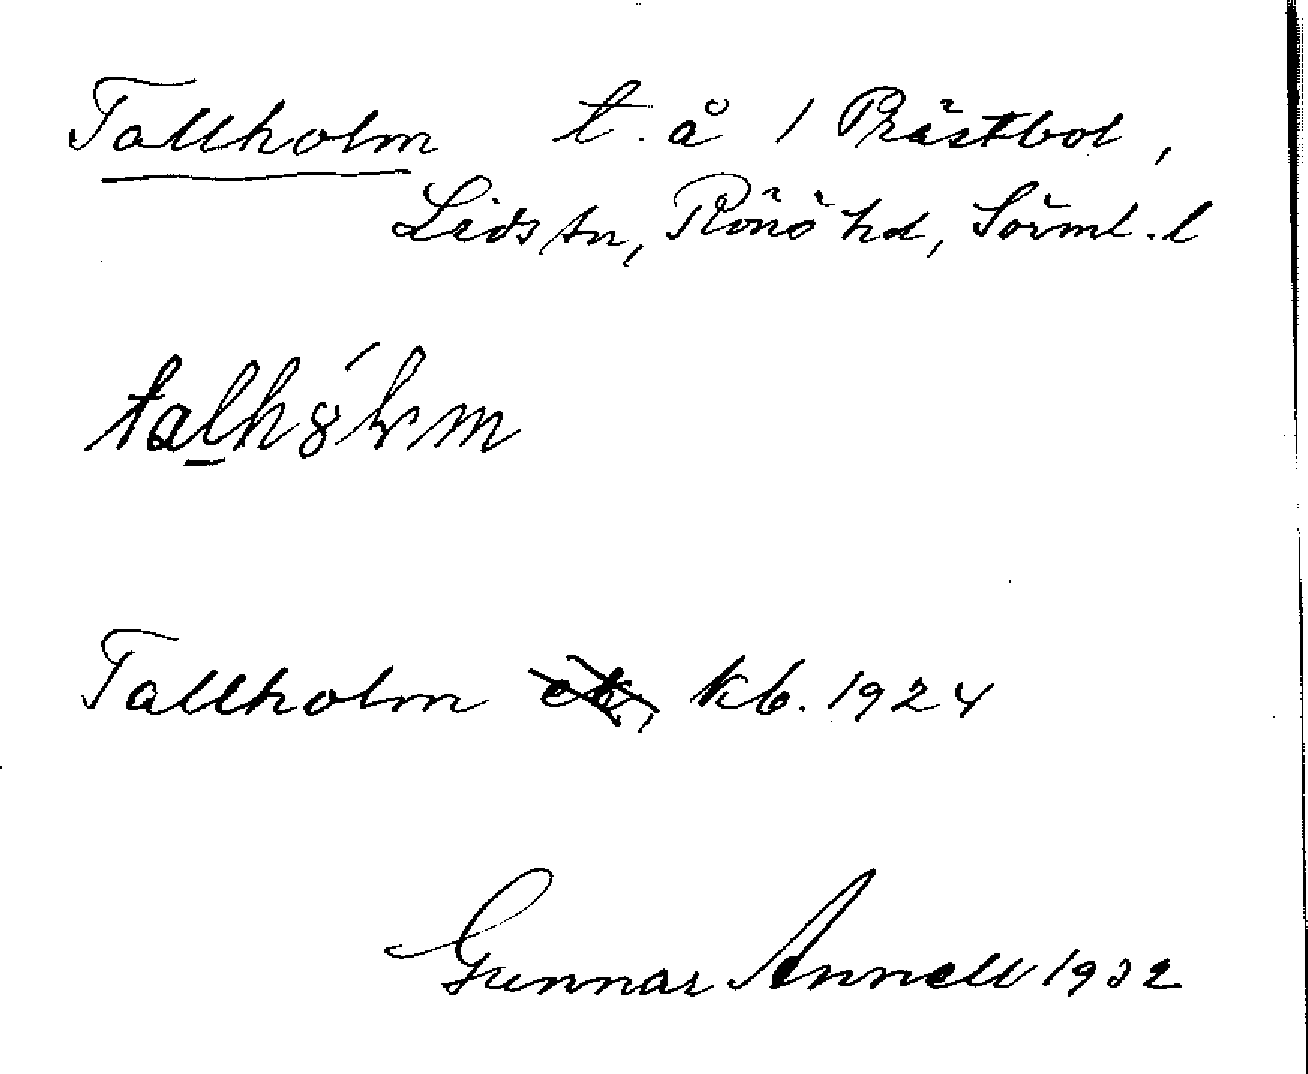 Tallholm t. å 1 Prästbol,
Lids sn, Rönö hd, Sörml. l
Tallholm kb. 1924
Gunnar Annell 1932